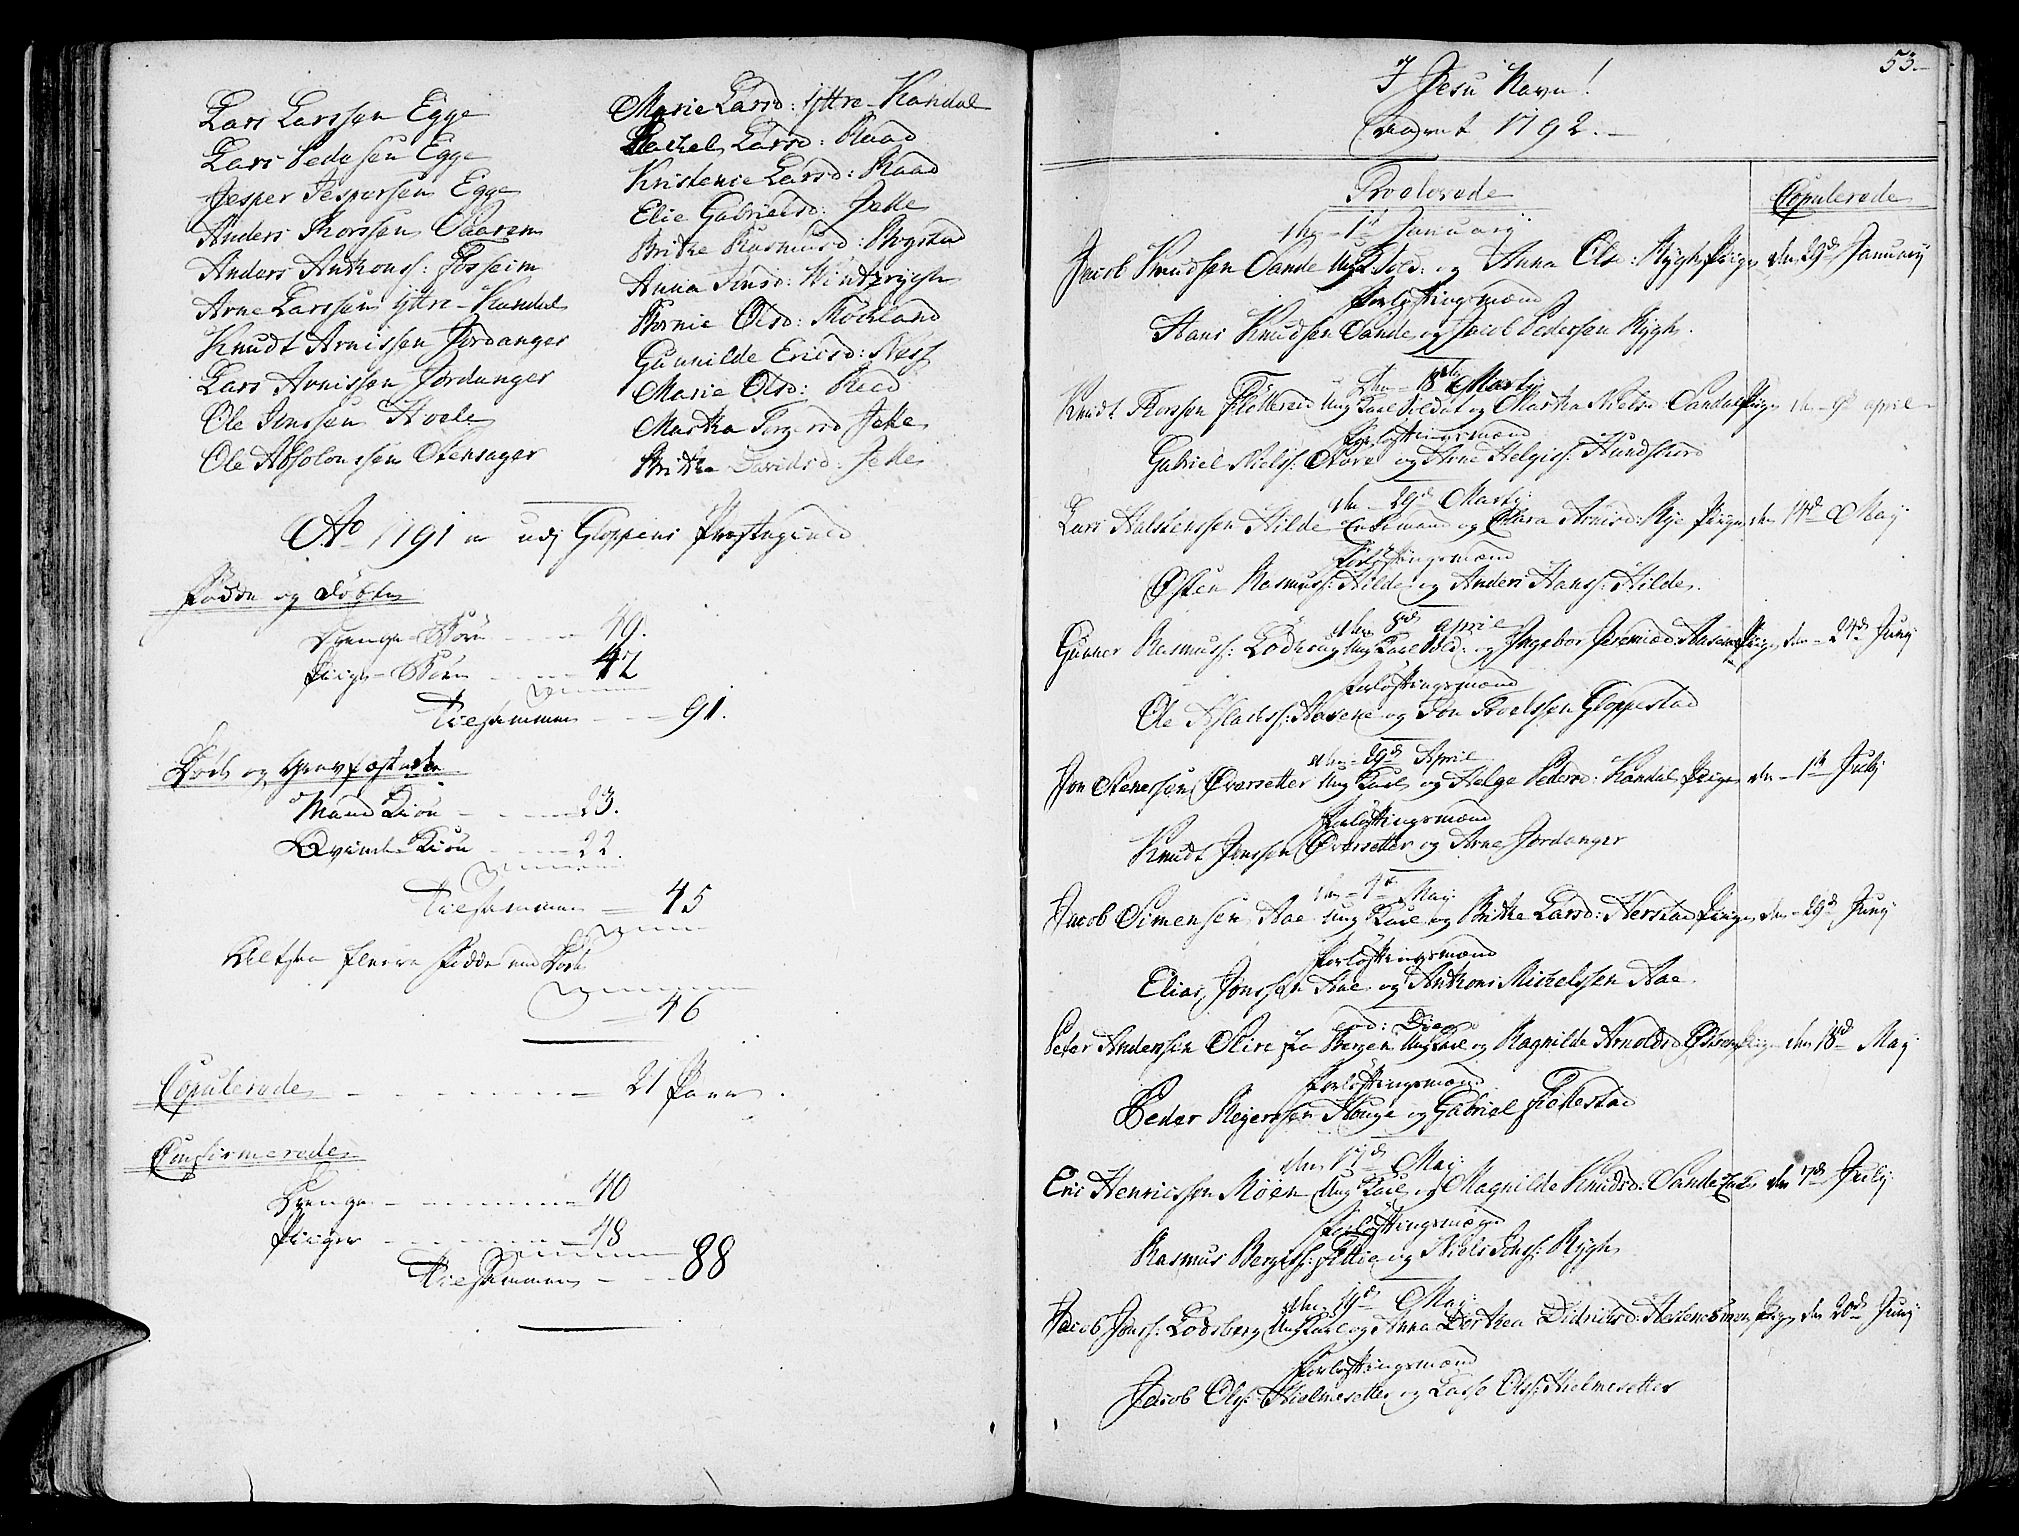 Lars Larssen Egge
Lars Pedersen Egge
Jesper Jespersen Egge
Anders Thorssen Aaaren
Anders Anthonss: Fosheim
Arne Larssen Yttre-Kandal
Knudt Arnissen Jordanger
Lars Arnissen Jordanger
Ole Jonssen Hoele
Ole Absolonssen Stensager
Marie Larsd: Yttre-Kandal
Rachel Larsd: Raad
Kristense Larsd: Raad
Elie Gabrielsd: Jette
Brithe Rasmusd: Rogstad
Anna Jonsd:
Bornie Olsd: Röckland
Gunnilde Ericsd: Ness
Marie Olsd: Reed
Martha Torgersd Jette
Brithe Davidsd: Jette
Ao 1791 er udj Gloppens Præstegield
Födde og Döbte
Drenge-Börn 49.
Piige-Börn 42
Tilsammen 91.
Döde og Gravfæstede
Mand Kiön 23.
Qvinde Kiön 22.
Tilsammen 45
Altsaa fleere födde end Döde
46
Copulerede 21 Par
Confirmerede
Drenge 40
Piiger 48
Tilsammen 88
53.
I Jesu Navn!
Aaret 1792.
Troolovede
Copulerede
den 1ste January
Jacob Knudsen Sande Ung K. Sold: og Anna Ols: Rygh Piige den 29de January
Forlöftingsmænd
Hans Knudsen Sande og Jacob Pedersen Rygh.
den 18de Marty
Knudt Thorssen Flöttereid Ung Karl Soldat og Martha Nielsd Sandal Piige den 9de april
Forlöftingsmænd
Gabriel Nielss: Støre og Arne Helgiss: Hundskord
den 29de Marty
Lars Halstenssen Hilde Enkemand og Sara Arnisd: Rye Piige den 14de May
Forlöftingsmænd
Østen Rasmuss: Hilde og Anders Hanss: Hilde
den 8de april
Gunner Rasmuss: Lodeog Ung Karl Sold: og Ingebor Jeremiæd: Aasene Piige den 24de Juny
Forlöftingsmænd
Ole Aslachss: Aasene og Jon Troelssen Gloppestad
den 29de April
Jon Stenerssen Øvresetter Ung Karl og Helge Pedersd: Kandal Piige den 1ste July
Forlöftingsmænd
Knudt Jenssen Øvresetter og Arne Jordanger
den 1te May
Jacob Simensen Aae Ung Karl og Brithe Larsd: Herstad Piige den 29de Juny
Forlöftingsmænd
Elias Jonssen Aae og Anthoni Michelssen Aae.
eod: Die
Peter Andersen fra Bergen Ung Karl og Ragnilde Arnoldsd Piige den 18de May
Forlöftingsmænd
Peder Reyerssen Houge og Gabriel Fiellestad
den 17de May
Eric Henricssen Möen Ung Karl og Magnilde Knudsd: Sande den 7de July
Forlöftingsmænd
Rasmus Bergess: Fittie og Niels Jonss: Rygh
den 19de May
Jacob Jonss: Lodsberg Ung Karl og Anna Dorthea Didricsd: Hestenesören Piige den 20de Juny
Forlöftingsmænd
Jacob Olss: Hielmesetter og Lasse Olss: Hielmesetter